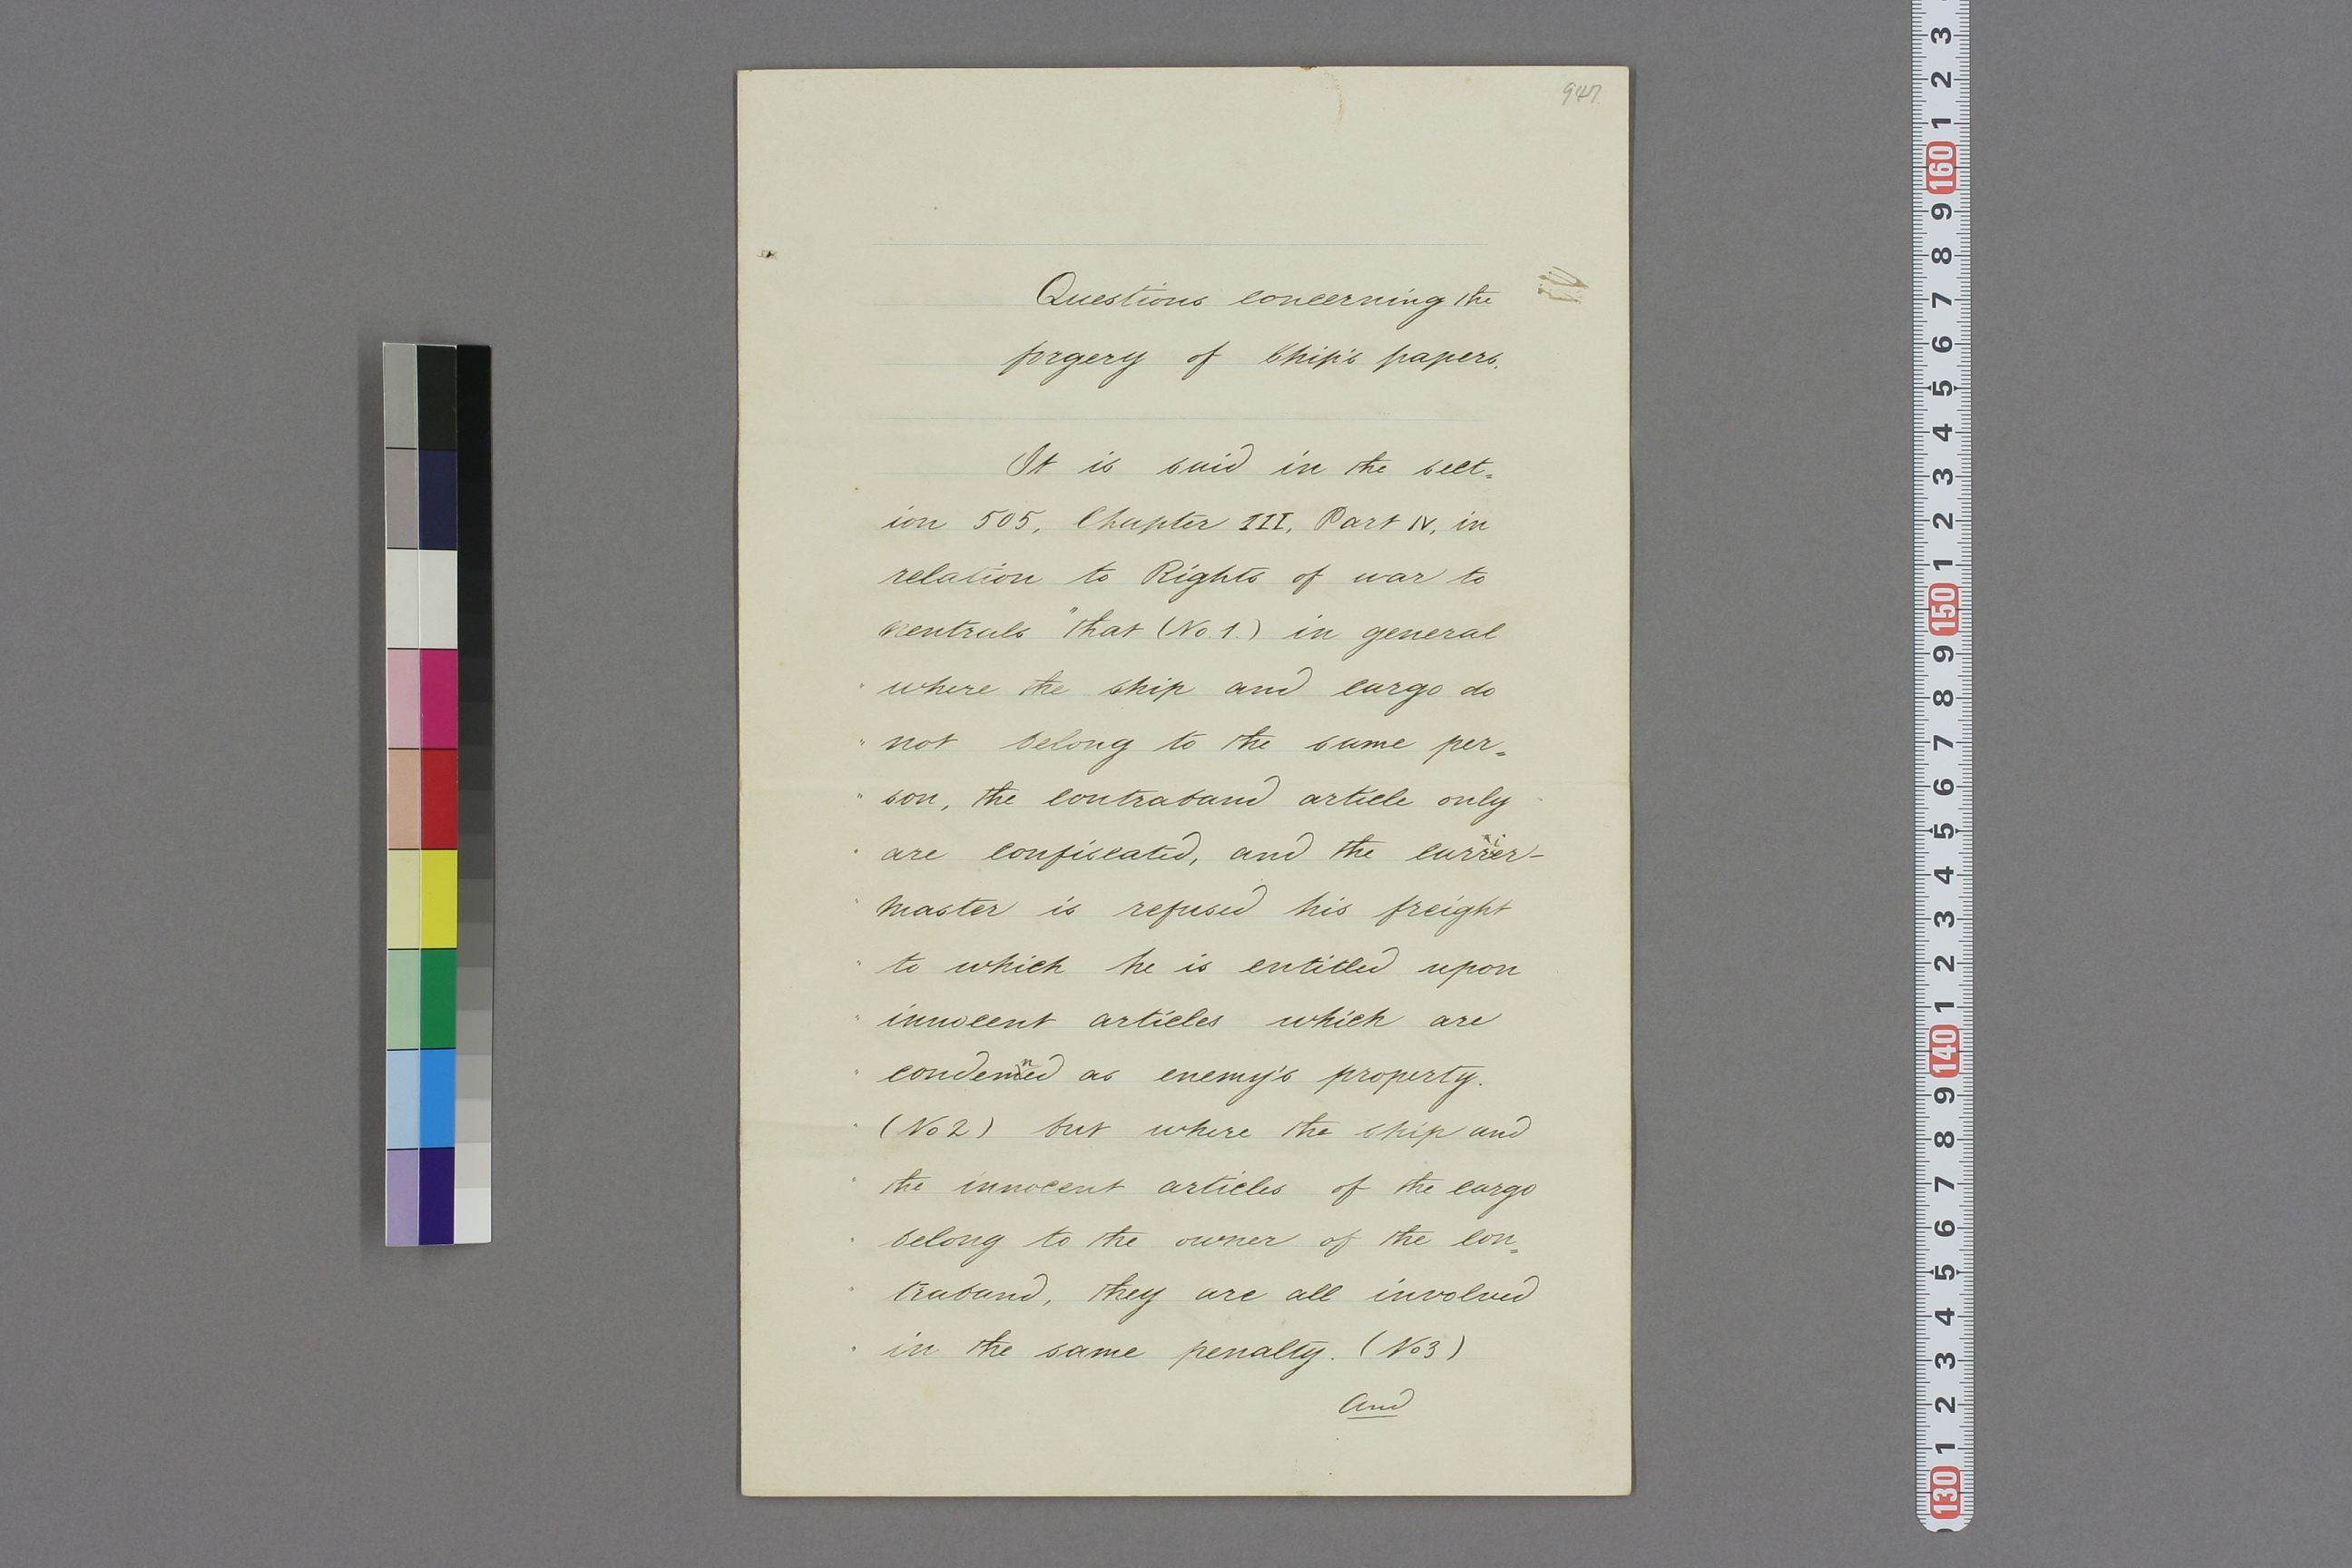 947.
Questions concerning the
forgery of Ship's papers.
It is said in the sect=
ion 505, Chapter III, Part IV, in
relation to Rights of war to
neutrals "that (No. 1.) in general
" where the ship and cargo do
" not belong to the same per=
" son, the contraband article only
" are confiscated, and the carrier-
" master is refused his freight
" to which he is entitled upon
" innocent articles which are
" condemned as enemy's property.
" (No 2) but where the ship and
" the innocent articles of the cargo
" belong to the owner of the con=
" traband, they are all involved
" in the same penalty. (No 3)
And
3
2
1
160
9
8
7
6
5
4
3
2
1
150
9
8
7
6
5
4
3
2
1
140
9
8
7
6
5
4
3
2
1
130